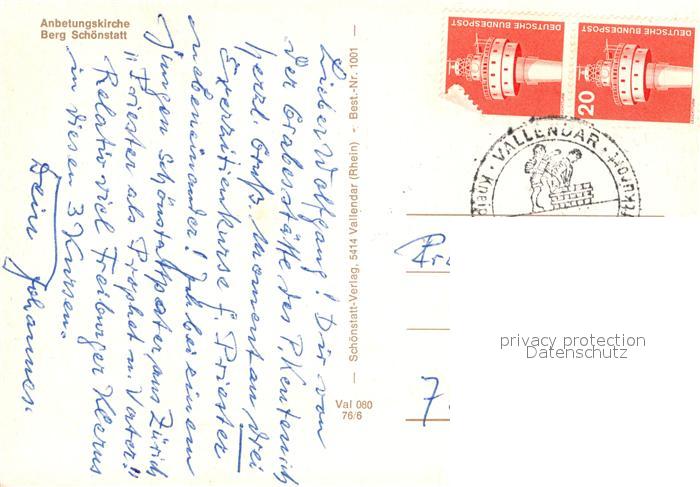 Anbetungskirche
Berg Schönstatt
Lieber Wolfgang! Dir von
der Grabesstätte des P. Kentenich
herzl. Gruß. Momentan drei
Exerzitienkurse f. Priester
nebeneinander! Ich bei einem
jungen Schönstattpater, aus Zürich
"Priester als Prophet u. Vater."
Relativ viel Freiburger Klerus
in diesen 3 Kursen.
Dein Johannes.
Schönstatt-Verlag, 5414 Vallendar (Rhein) - Best.-Nr. 1001
Val 080
76/6
DEUTSCHE BUNDESPOST
DEUTSCHE BUNDESPOST
20
VALLENDAR
Kneip
7
privacy protection
Datenschutz